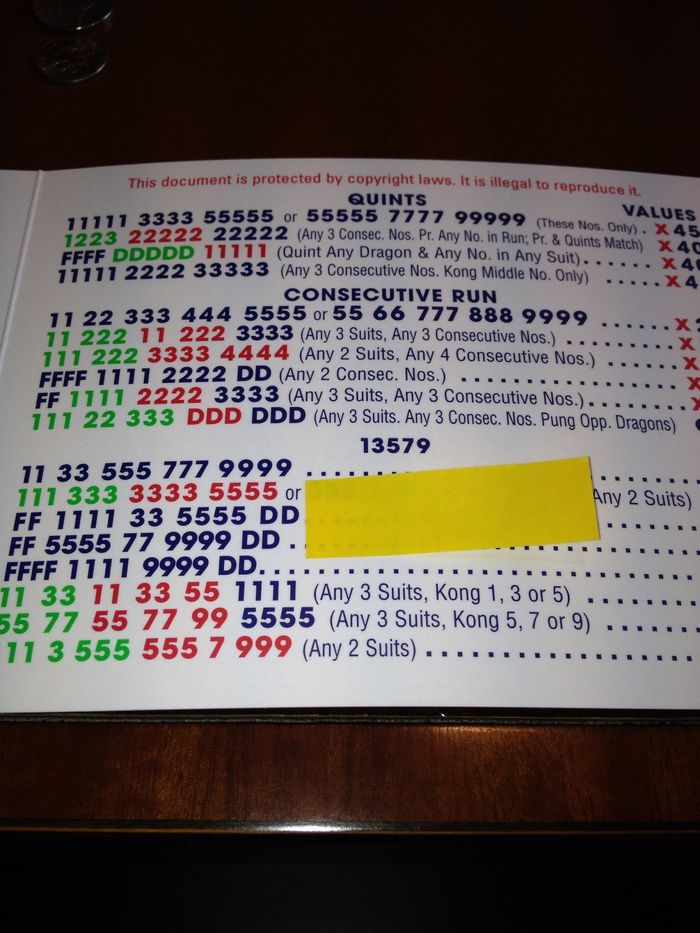 This document is protected by copyright laws. It is illegal to reproduce it.
QUINTS
VALUES
11111 3333 55555 or 55555 7777 99999 (These Nos. Only) . X 45
1223 22222 22222 (Any 3 Consec. Nos. Pr. Any No. in Run; Pr. & Quints Match) X 40
FFFF DDDDD 11111 (Quint Any Dragon & Any No. in Any Suit) . . . . . . X 40
11111 2222 33333 (Any 3 Consecutive Nos. Kong Middle No. Only) X 4
CONSECUTIVE RUN
11 22 333 444 5555 or 55 66 777 888 9999 . . . . . . X
11 222 11 222 3333 (Any 3 Suits, Any 3 Consecutive Nos.) . . . . . . . . . . X
111 222 3333 4444 (Any 2 Suits, Any 4 Consecutive Nos.) . . . . . . . X
FFFF 1111 2222 DD (Any 2 Consec. Nos.) . . . . . . . . . . . . . . . . . . X
FF 1111 2222 3333 (Any 3 Suits, Any 3 Consecutive Nos.) . . . . . . . X
111 22 333 DDD DDD (Any 3 Suits. Any 3 Consec. Nos. Pung Opp. Dragons)
13579
11 33 555 777 9999 . . . .
111 333 3333 5555 or Any 2 Suits)
FF 1111 33 5555 DD
FF 5555 77 9999 DD . .
FFFF 1111 9999 DD. . . . . . . . . . . . . . . . . . . . . . . . . .
11 33 11 33 55 1111 (Any 3 Suits, Kong 1, 3 or 5) . . . . . . . . .
55 77 55 77 99 5555 (Any 3 Suits, Kong 5, 7 or 9) . . . . . . . .
11 3 555 555 7 999 (Any 2 Suits) . . . . . . . . . . . . . . . . . . . .